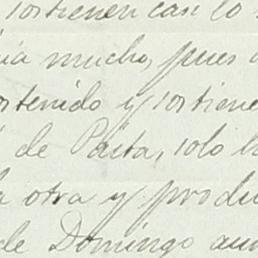 sostienen casi lo
mucho, pues
sostenido y sostiene
de Paita, solo
otra y produ
de Domingo aun